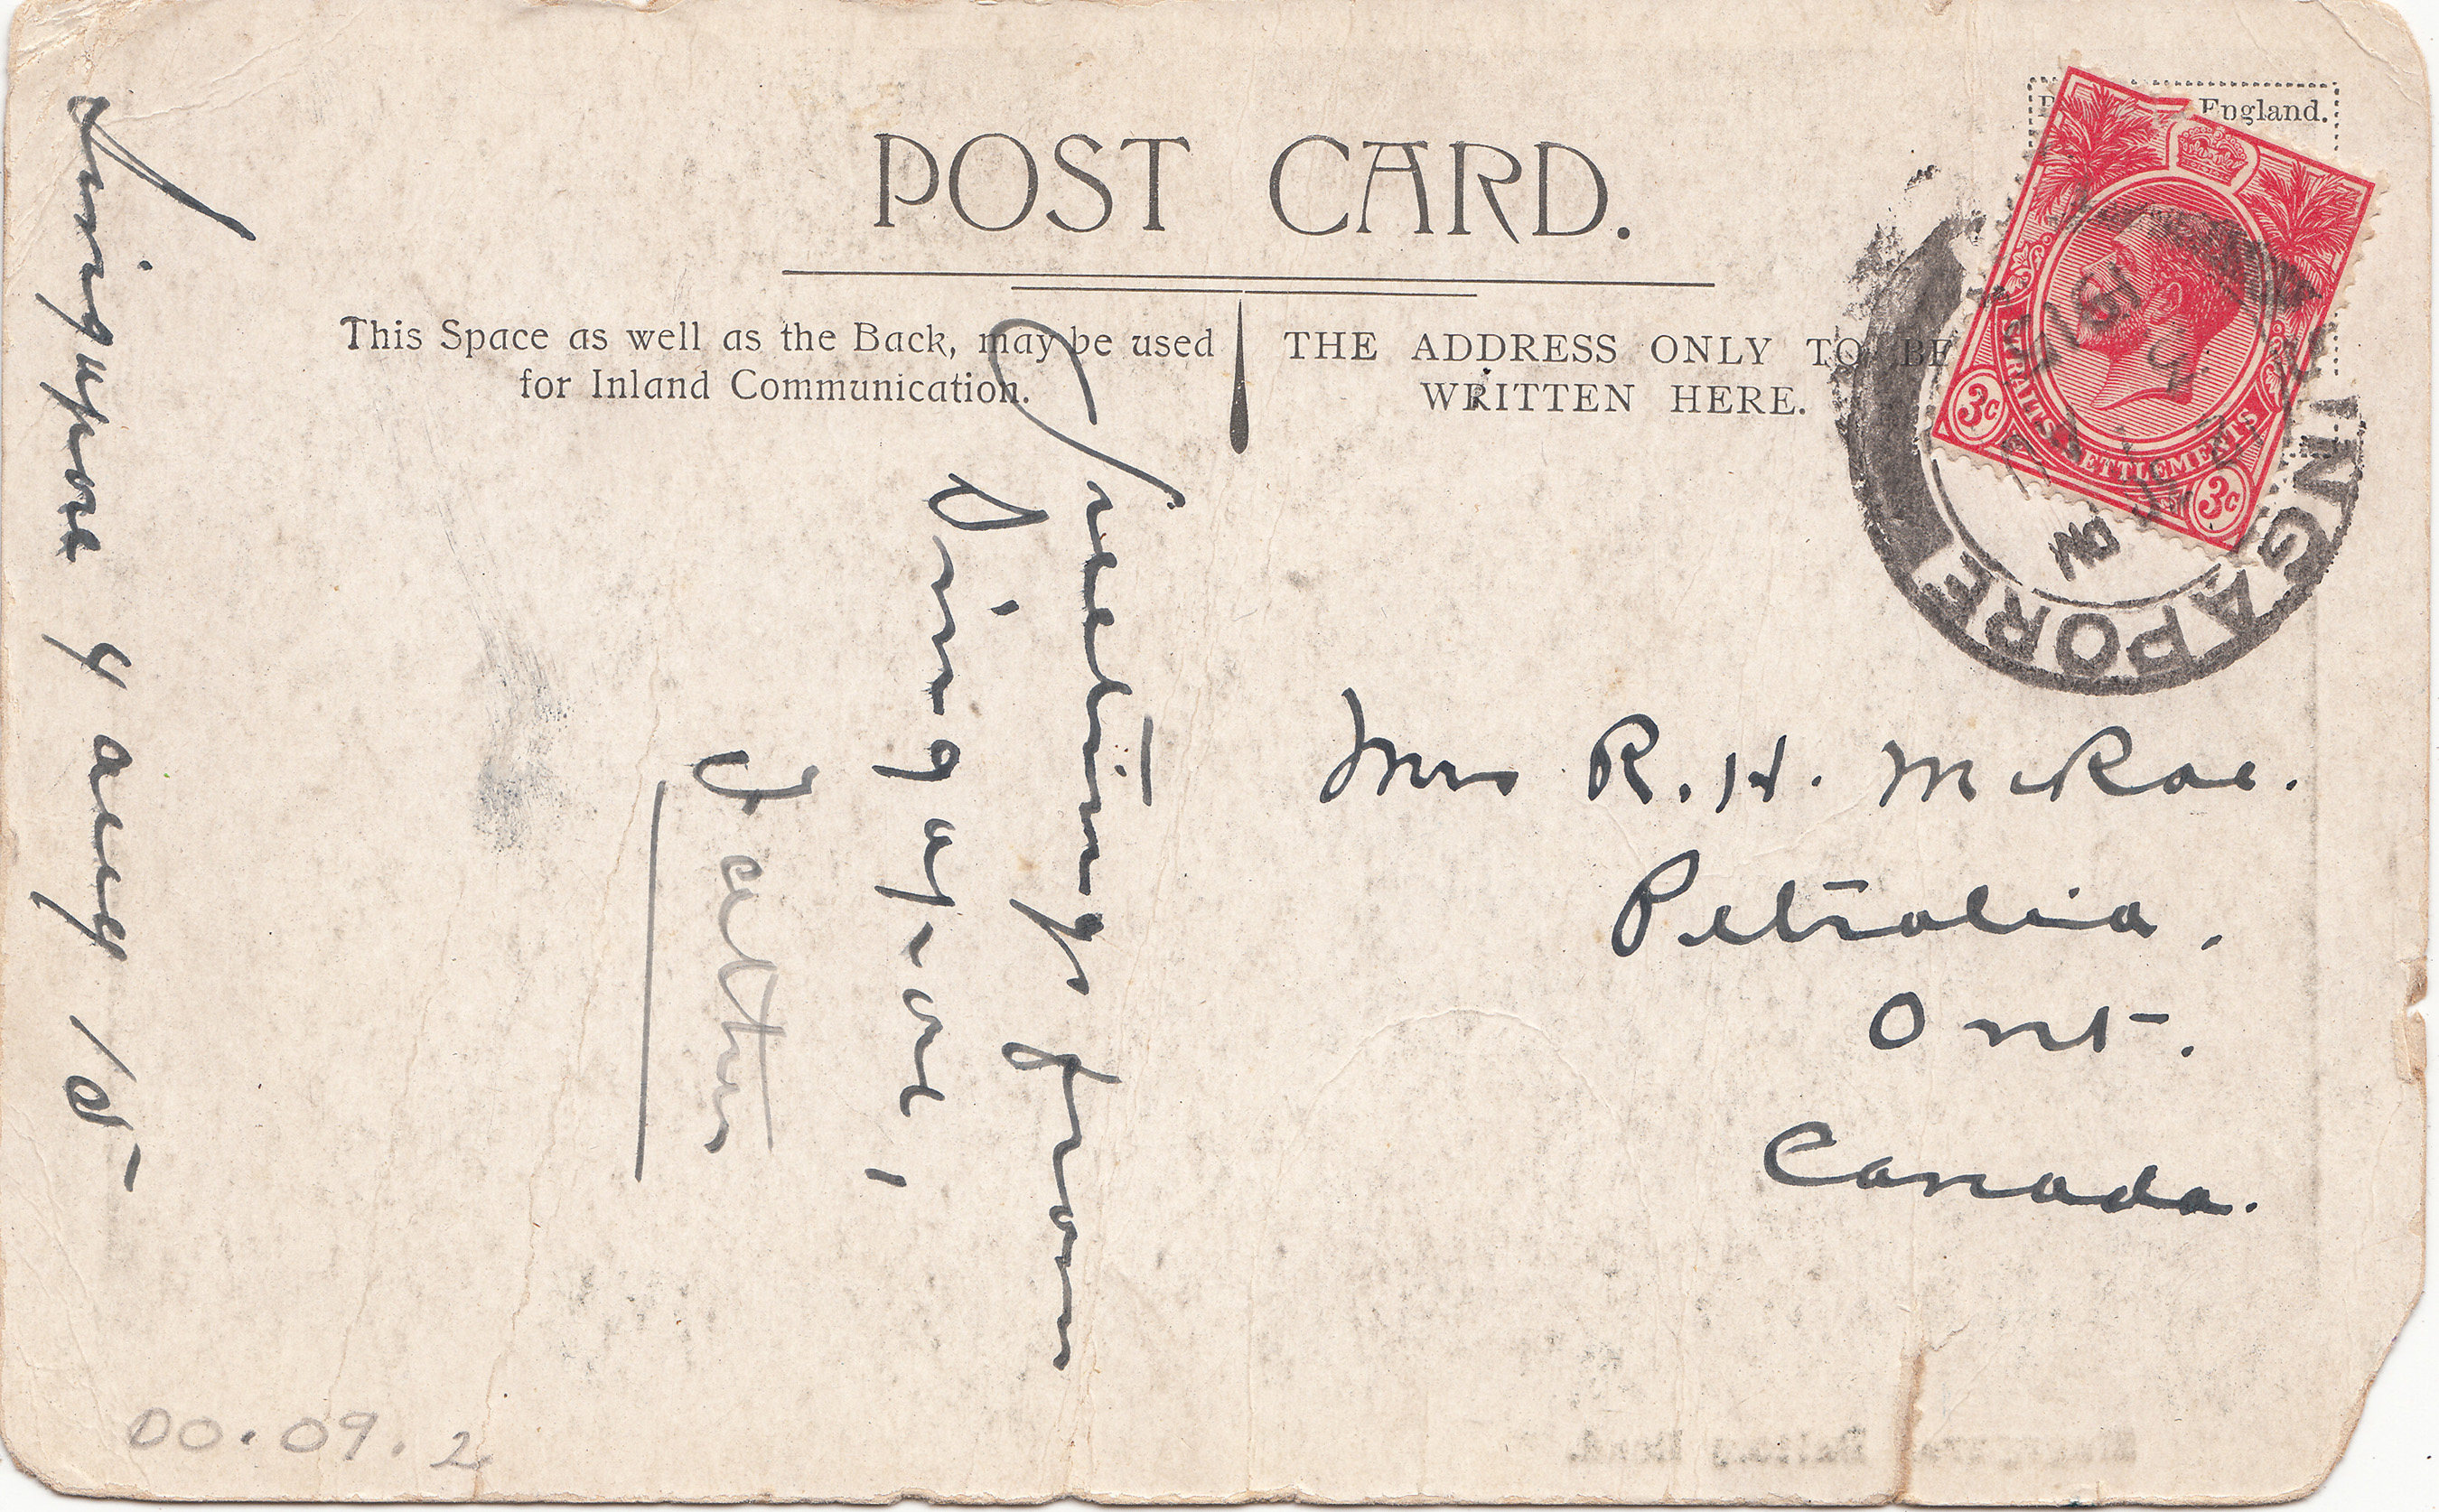 POST CARD.
This Space as well as the Back, may be used
for Inland Communication.
THE ADDRESS ONLY TO BE
WRITTEN HERE.
England.
STRAITS SETTLEMENTS
3c 3c
SINGAPORE
PM
Singapore 4 Aug 15
Greetings from
Singapore,
Father
Mrs R. H. McRae.
Petrolia.
Ont.
Canada.
00.09.2